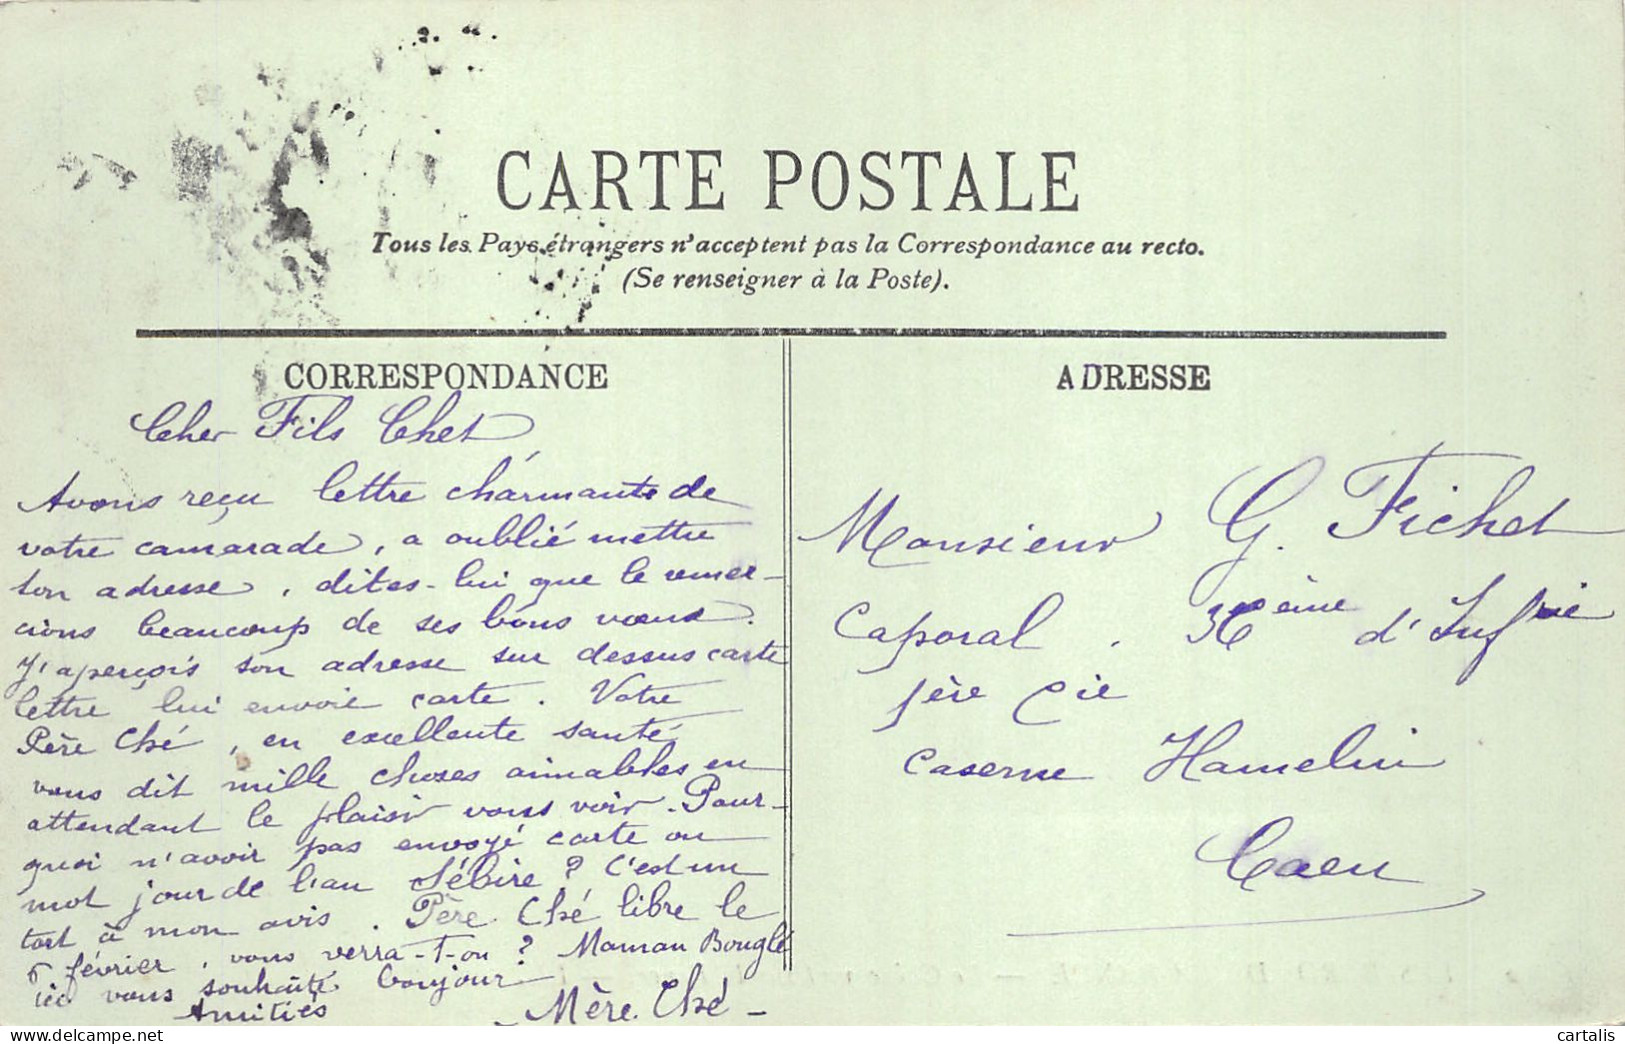 CARTE POSTALE
Tous les Pays étrangers n'acceptent pas la Correspondance au recto.
(Se renseigner à la Poste).
CORRESPONDANCE
Cher Fils Chet
Avons reçu lettre charmante de
votre camarade, a oublié mettre
son adresse, dites-lui que le remer-
cions beaucoup de ses bons vœux.
J'aperçois son adresse sur dessus carte
lettre lui envoie carte. Votre
Père Ché, en excellente santé
vous dit mille choses aimables en
attendant le plaisir vous voir. Pour-
quoi n'avoir pas envoyé carte ou
mot jour de l'an Sébire? C'est un
tort à mon avis. Père Ché libre le
6 février, vous verra-t-on? Maman Bouglé
ici vous souhaite bonjour
Amitiés
- Mère Ché -
ADRESSE
Monsieur G. Fichet
Caporal. 36ème d'Infrie
1ère Cie
Caserne Hamelin
Caen
cartalis